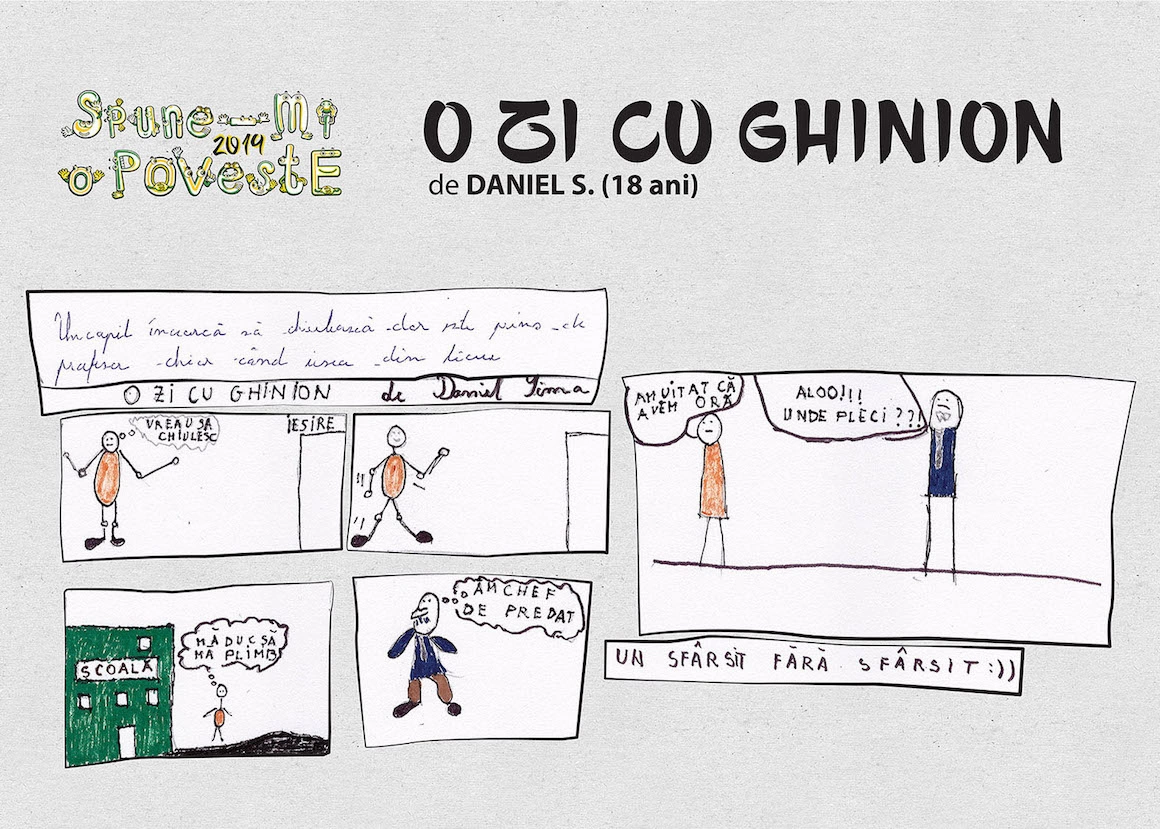 Spune-Mi
2019
o PovestE
O ZI CU GHINION
de DANIEL S. (18 ani)
Un copil încearcă să chiulească dar este prins de
profesor chiar când iesea din liceu
O ZI CU GHINION de Daniel Sima
VREAU SA
CHIULESC
IESIRE
MĂ DUC SĂ
MA PLIMB
ȘCOALĂ
AM CHEF
DE PREDAT
AM UITAT CĂ
AVEM ORĂ
ALOO!!!
UNDE PLECI??!
UN SFÂRSIT FĂRĂ SFÂRSIT:))